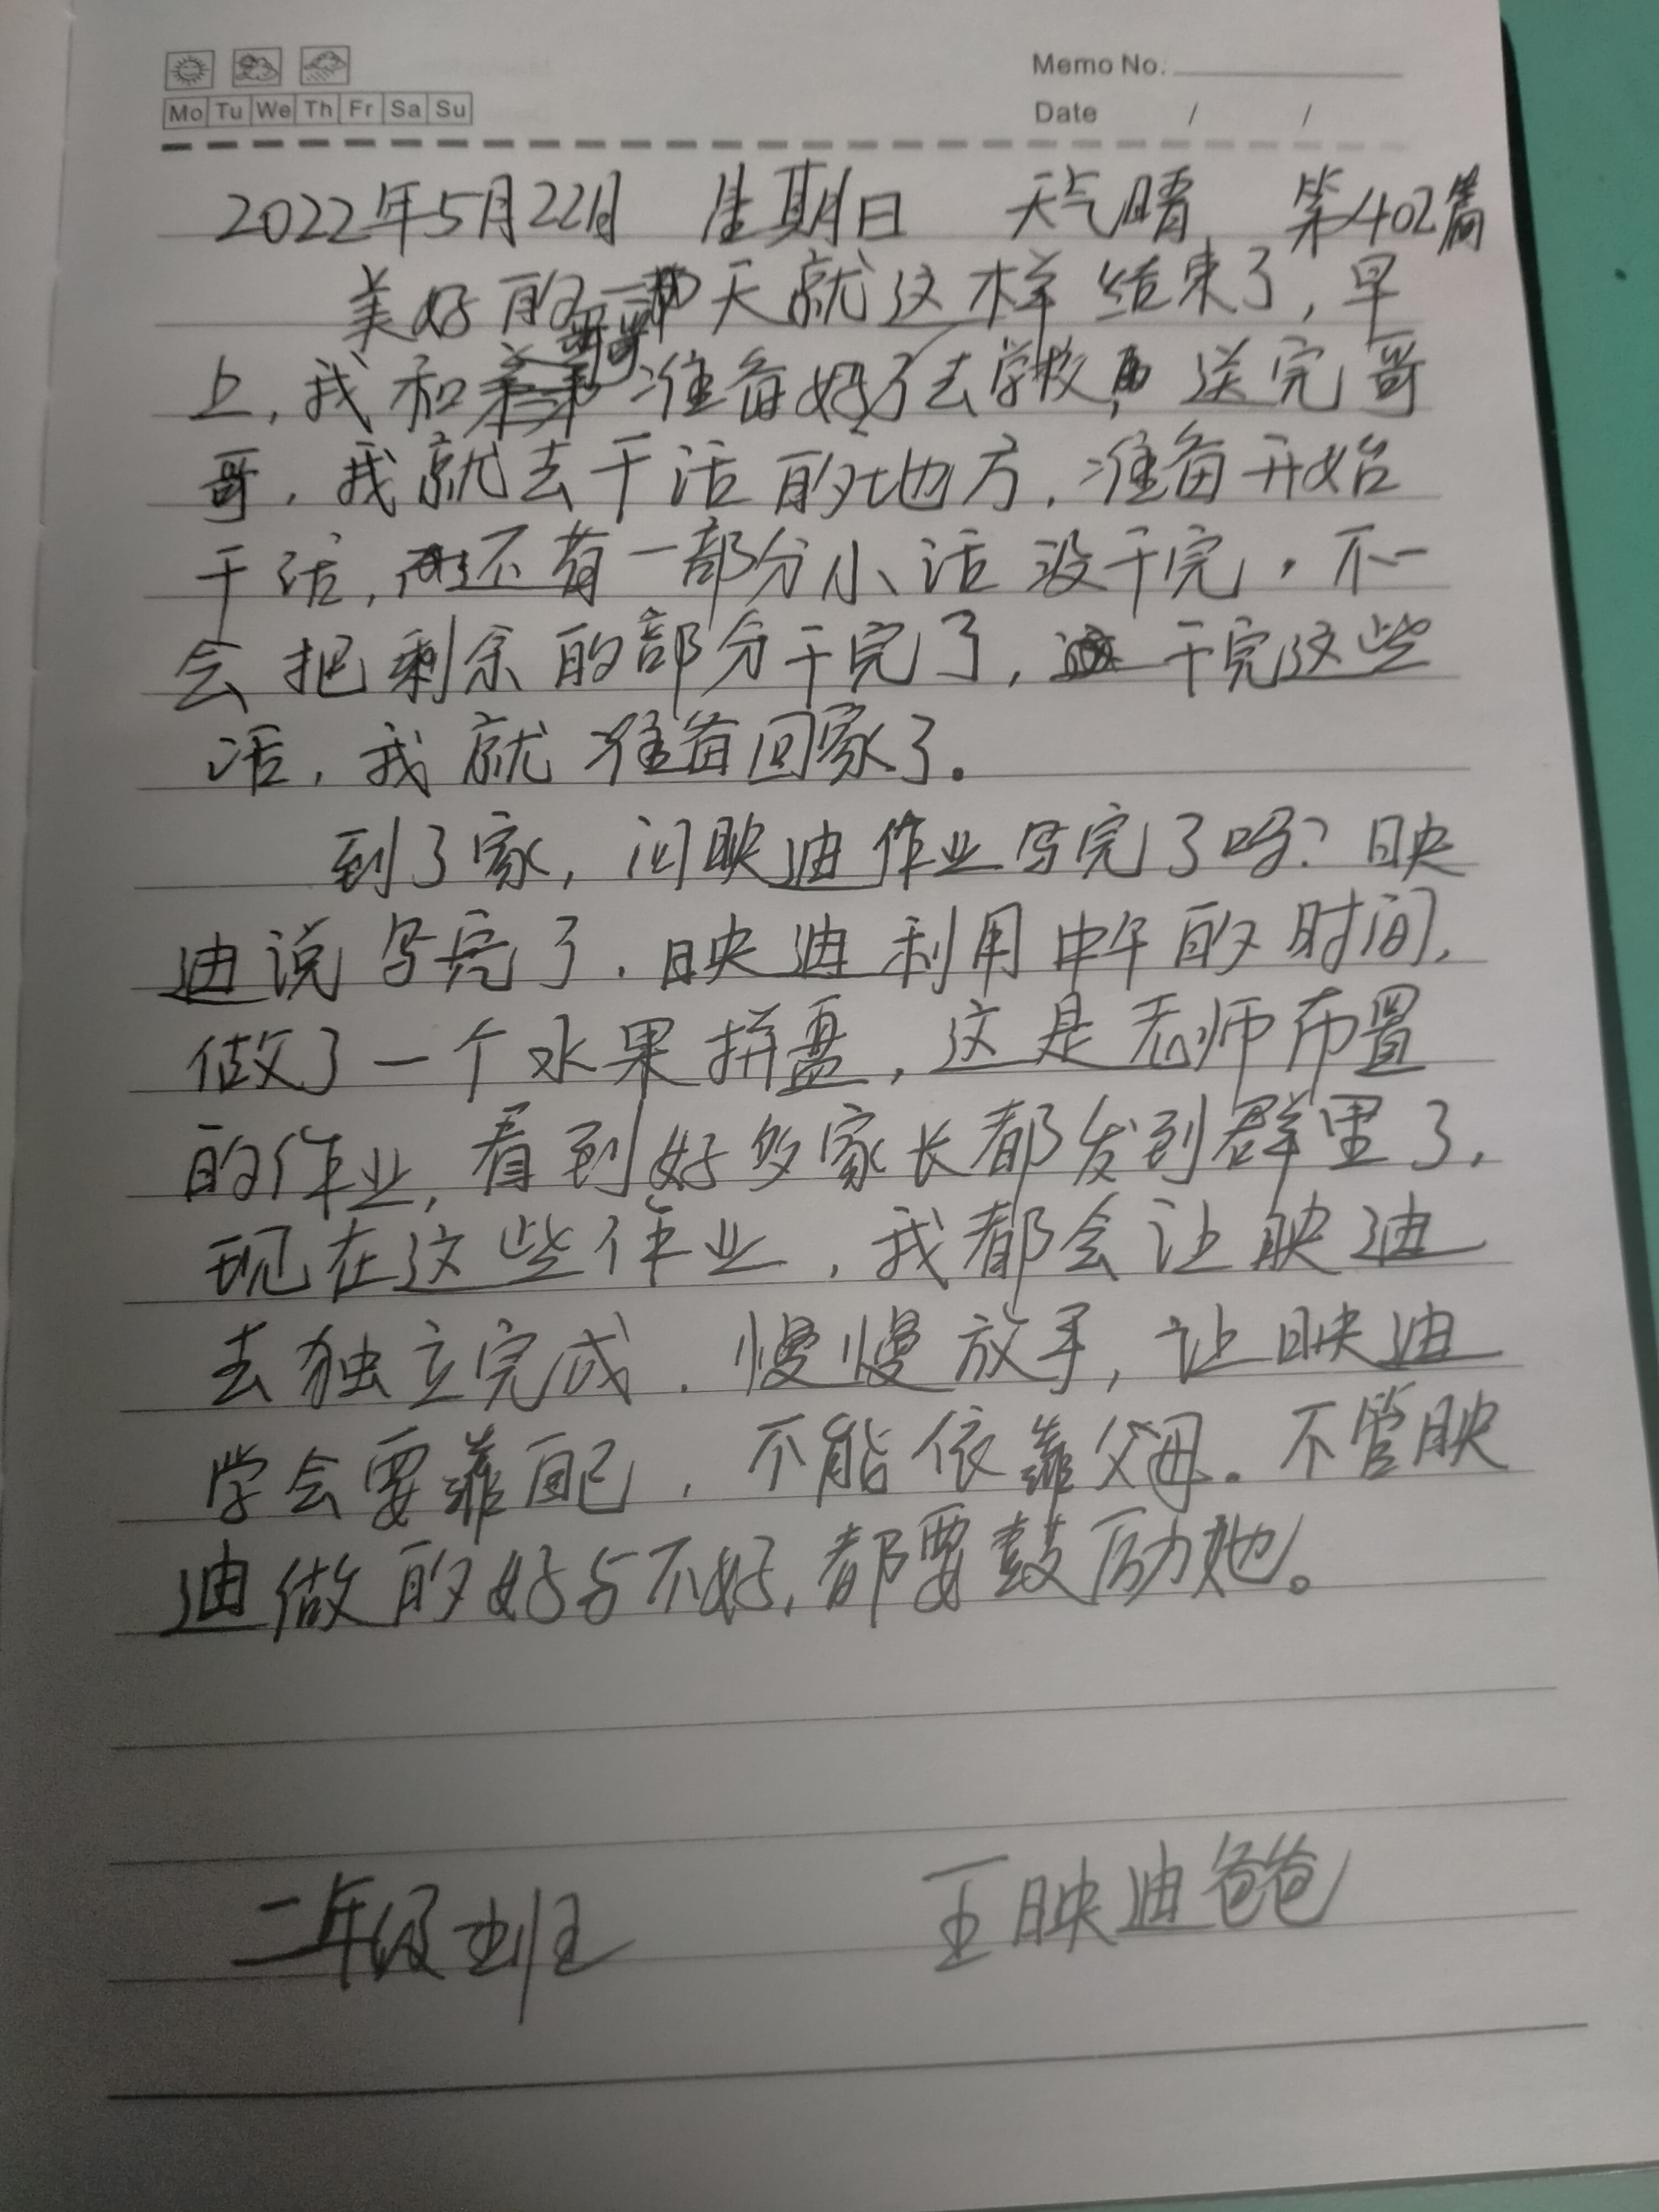 Memo No.
Mo Tu We Th Fr Sa Su
Date / /
2022年5月22日 星期日 天气晴 第402篇
美好的一天就这样结束了,早
上,我和哥哥准备好了去学校,送完哥
哥,我就去干活的地方,准备开始
干活,还有一部分小活没干完,不一
会把剩余的部分干完了,干完这些
活,我就准备回家了。
到了家,问映迪作业写完了吗?映
迪说写完了,映迪利用中午的时间,
做了一个水果拼盘,这是老师布置
的作业,看到好多家长都发到群里了,
现在这些作业,我都会让映迪
去独立完成,慢慢放手,让映迪
学会要靠自己,不能依靠父母。不管映
迪做的好与不好,都要鼓励她。
二年级班 王映迪爸爸